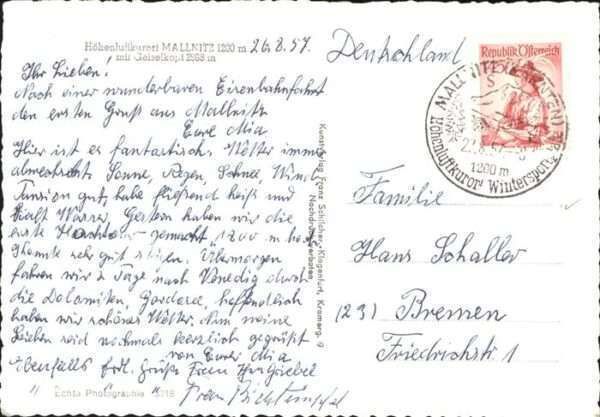 Höhenluftkurort MALLNITZ 1200 m
mit Geiselkopf 2968 m
26.8.57.
Ihr Lieben!
Nach einer wunderbaren Eisenbahnfahrt
den ersten Gruß aus Mallnitz
Eure Mia
Hier ist es fantastisch Wetter immer
abwechselnd Sonne, Regen, Schnee, Wind
Pension gut, habe fließend heiß und
kalt Wasser, Gestern haben wir die
erste gemacht 1200 m hoch
konnte sehr gut Übermorgen
fahren wir 2 Tage nach Venedig durch
die Dolomiten, Gardasee, hoffentlich
haben wir schönes Wetter. Nun meine
Lieben seid nochmals herzlich gegrüßt
von Eurer Mia
Ebenfalls frdl. Grüße Frau
Frau
Echte Photographie
Kunstverlag Franz Schilcher, Klagenfurt, Kramerg. 9
Nachdruck verboten
Deutschland
Republik Österreich
MALLNITZ (KÄRNTEN)
22.8.57
1200 m
Höhenluftkurort Wintersport
Familie
Hans Schaller
(23) Bremen
Friedrichstr. 1